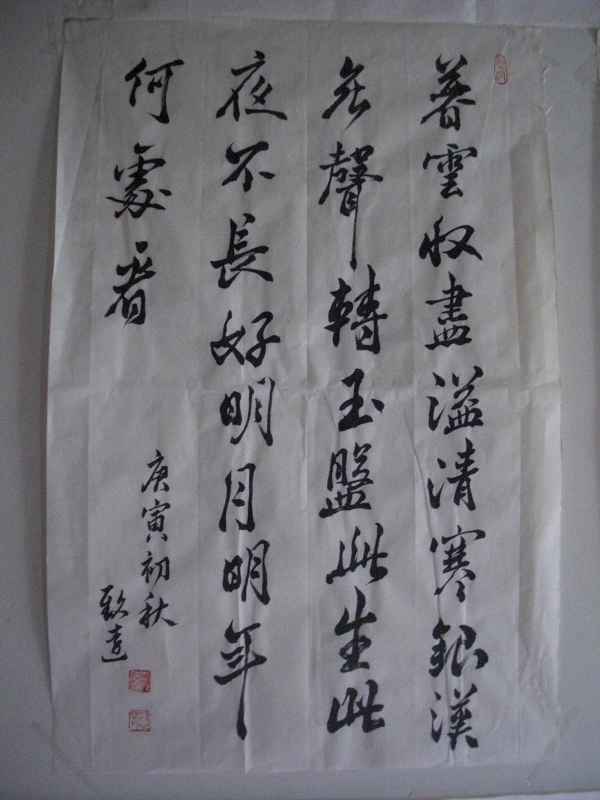 暮雲収盡溢清寒銀漢
無聲轉玉盤此生此
夜不長好明月明年
何處看
庚寅初秋
致遠